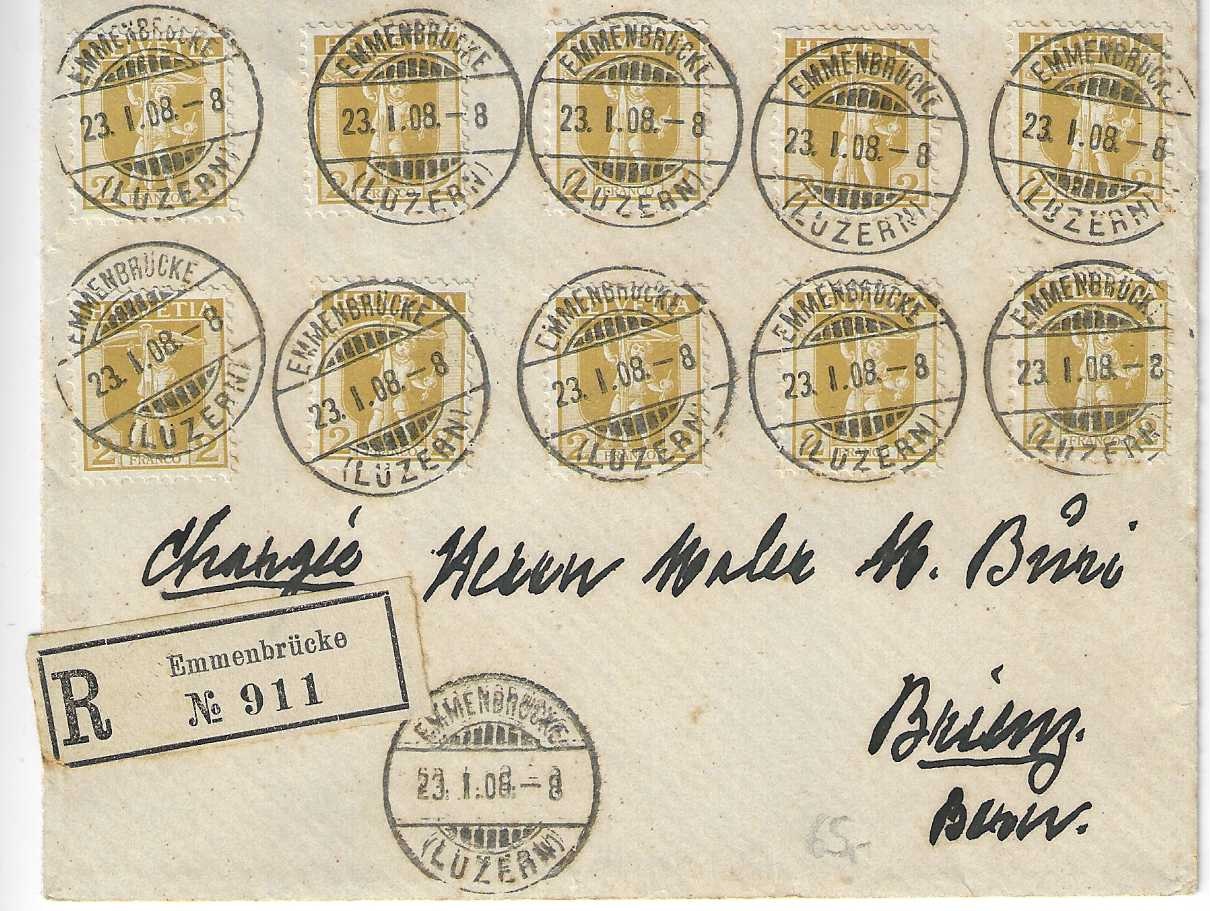 EMMENBRÜCKE EMMENBRÜCKE EMMENBRÜCKE EMMENBRÜCKE EMMENBRÜCKE
HELVETIA
23. I. 08. – 8 23. I. 08. – 8 23. I. 08. – 8 23. I. 08. – 8 23. I. 08. – 8
(LUZERN) (LUZERN) (LUZERN) (LUZERN) (LUZERN)
2 FRANCO 2 2 FRANCO 2 FRANCO 2 2 2
EMMENBRÜCKE EMMENBRÜCKE EMMENBRÜCKE EMMENBRÜCKE EMMENBRÜCKE
HELVETIA HELVETIA
23. I. 08. – 8 23. I. 08. – 8 23. I. 08. – 8 23. I. 08. – 8 23. I. 08. – 8
(LUZERN) (LUZERN) (LUZERN) (LUZERN) (LUZERN)
2 FRANCO 2 2 2 FRANCO 2 FRANCO 2 FRANCO 2
Chargée Herrn Maler M. Büri
R Emmenbrücke
№ 911
Brienz.
Bern.
EMMENBRÜCKE
23. I. 08. – 8
(LUZERN)
65.-